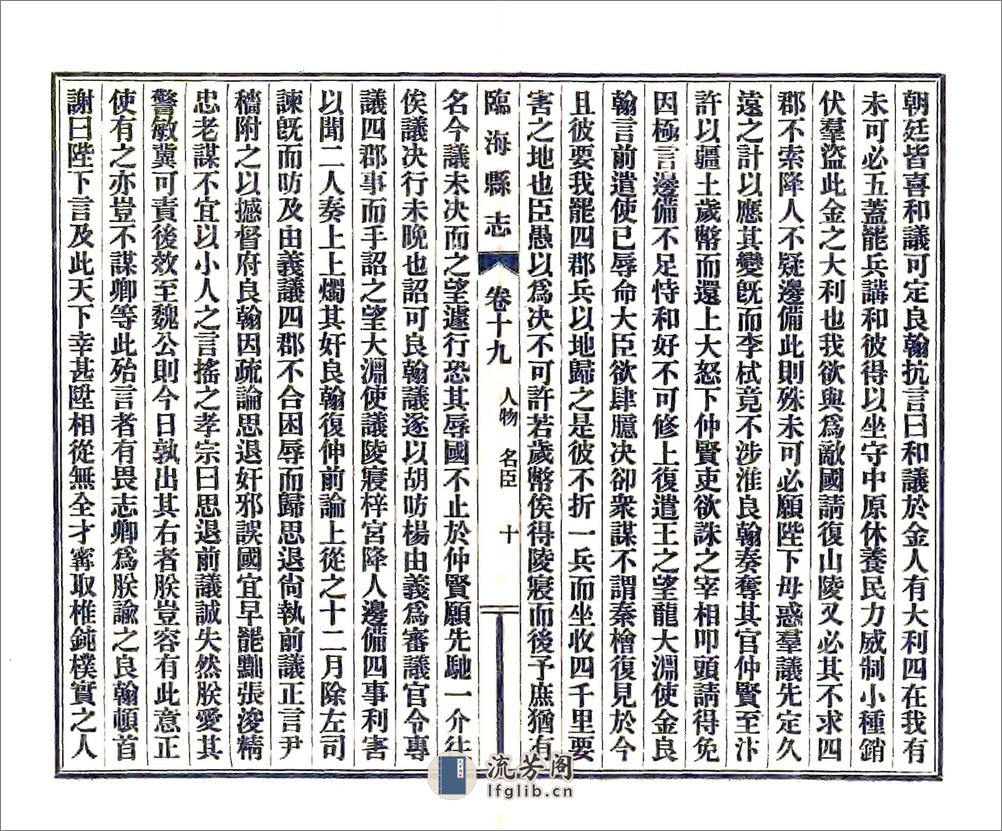 朝廷皆喜和議可定良翰抗言曰和議於金人有大利四在我有
未可必五蓋罷兵講和彼得以坐守中原休養民力威制小種銷
伏羣盜此金之大利也我欲與爲敵國請復山陵又必其不求四
郡不索降人不疑邊備此則殊未可必願陛下毋惑羣議先定久
遠之計以應其變旣而李栻竟不涉淮良翰奏奪其官仲賢至汴
許以疆土歲幣而還上大怒下仲賢吏欲誅之宰相叩頭請得免
因極言邊備不足恃和好不可修上復遣王之望龍大淵使金良
翰言前遣使已辱命大臣欲肆臆決卻衆謀不謂秦檜復見於今
且彼要我罷四郡兵以地歸之是彼不折一兵而坐收四千里要
害之地也臣愚以爲決不可許若歲幣俟得陵寢而後予庶猶有
臨海縣志 卷十九 人物 名臣 十
名今議未決而之望遽行恐其辱國不止於仲賢願先馳一介往
俟議決行未晚也詔可良翰議遂以胡昉楊由義爲審議官令專
議四郡事而手詔之望大淵使議陵寢梓宮降人邊備四事利害
以聞二人奏上上燭其奸良翰復伸前論上從之十二月除左司
諫旣而昉及由義議四郡不合困辱而歸思退尙執前議正言尹
穡附之以撼督府良翰因疏論思退奸邪誤國宜早罷黜張浚精
忠老謀不宜以小人之言搖之孝宗曰思退前議誠失然朕愛其
警敏冀可責後效至魏公則今日孰出其右者朕豈容有此意正
使有之亦豈不謀卿等此殆言者有畏志卿爲朕諭之良翰頓首
謝曰陛下言及此天下幸甚陞相從無全才甯取椎鈍樸實之人
流芳阁
lfglib.cn